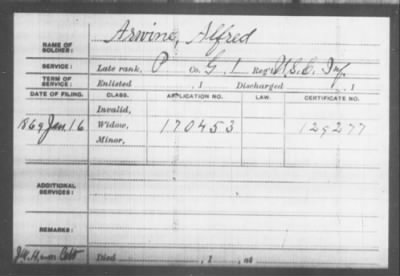 NAME OF SOLDIER: Arwine, Alfred
SERVICE: Late rank, P Co. G, 1 Reg't U.S.C. Inf
TERM OF SERVICE: Enlisted , 1 Discharged , 1
DATE OF FILING. CLASS. APPLICATION NO. LAW. CERTIFICATE NO.
Invalid,
1869 Jan. 16 Widow, 170453 129277
Minor,
ADDITIONAL SERVICES:
REMARKS:
Died , 1 , at